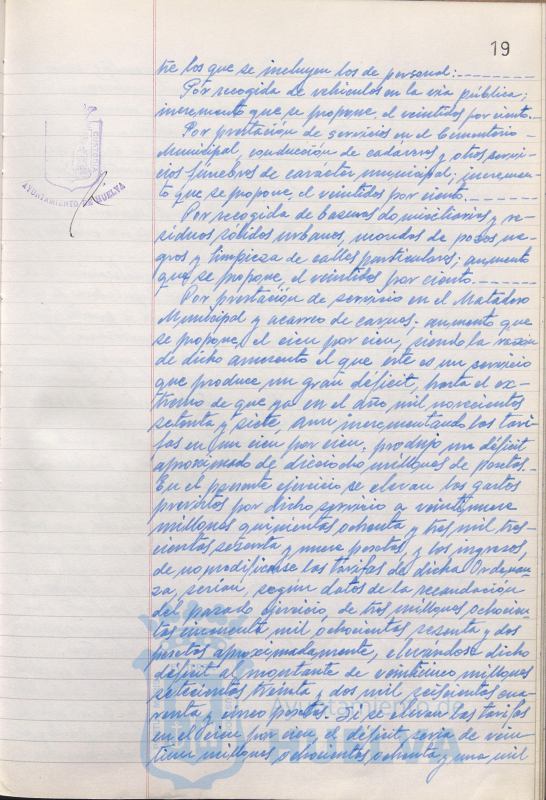 19
tre los que se incluyen los de personal:
Por recogida de vehículos en la vía pública;
incremento que se propone, el veintidos por ciento.
Por prestación de servicios en el Cementerio
Municipal, conducción de cadáveres y otros servi-
cios fúnebres de carácter municipal; incremen-
to que se propone, el veintidos por ciento.
Por recogida de basuras domiciliarias y re-
siduos sólidos urbanos, mondas de pozos ne-
gros y limpieza de calles particulares; aumento
que se propone, el veintidos por ciento.
Por prestación de servicio en el Matadero
Municipal y acarreo de carnes: aumento que
se propone, el cien por cien, siendo la razón
de dicho aumento el que éste es un servicio
que produce un gran déficit, hasta el ex-
tremo de que ya en el año mil novecientos
setenta y siete, aun incrementando las tari-
fas en un cien por cien, produjo un déficit
aproximado de dieciocho millones de pesetas.
En el presente ejercicio se elevan los gastos
previstos por dicho servicio a veintinueve
millones quinientas ochenta y tres mil tres-
cientas sesenta y nueve pesetas, y los ingresos,
de no modificarse las tarifas de dicha Ordenan-
za, serían, según datos de la recaudación
del pasado ejercicio, de tres millones ochocien-
tas cincuenta mil ochocientas sesenta y dos
pesetas aproximadamente, elevandose dicho
déficit al montante de veinticinco millones
setecientas treinta y dos mil seiscientas cua-
renta y cinco pesetas. Si se elevan las tarifas
en el cien por cien, el déficit sería de vein-
tiun millones ochocientas ochenta y una mil
AYUNTAMIENTO DE HUELVA
Ayuntamiento de
HUELVA